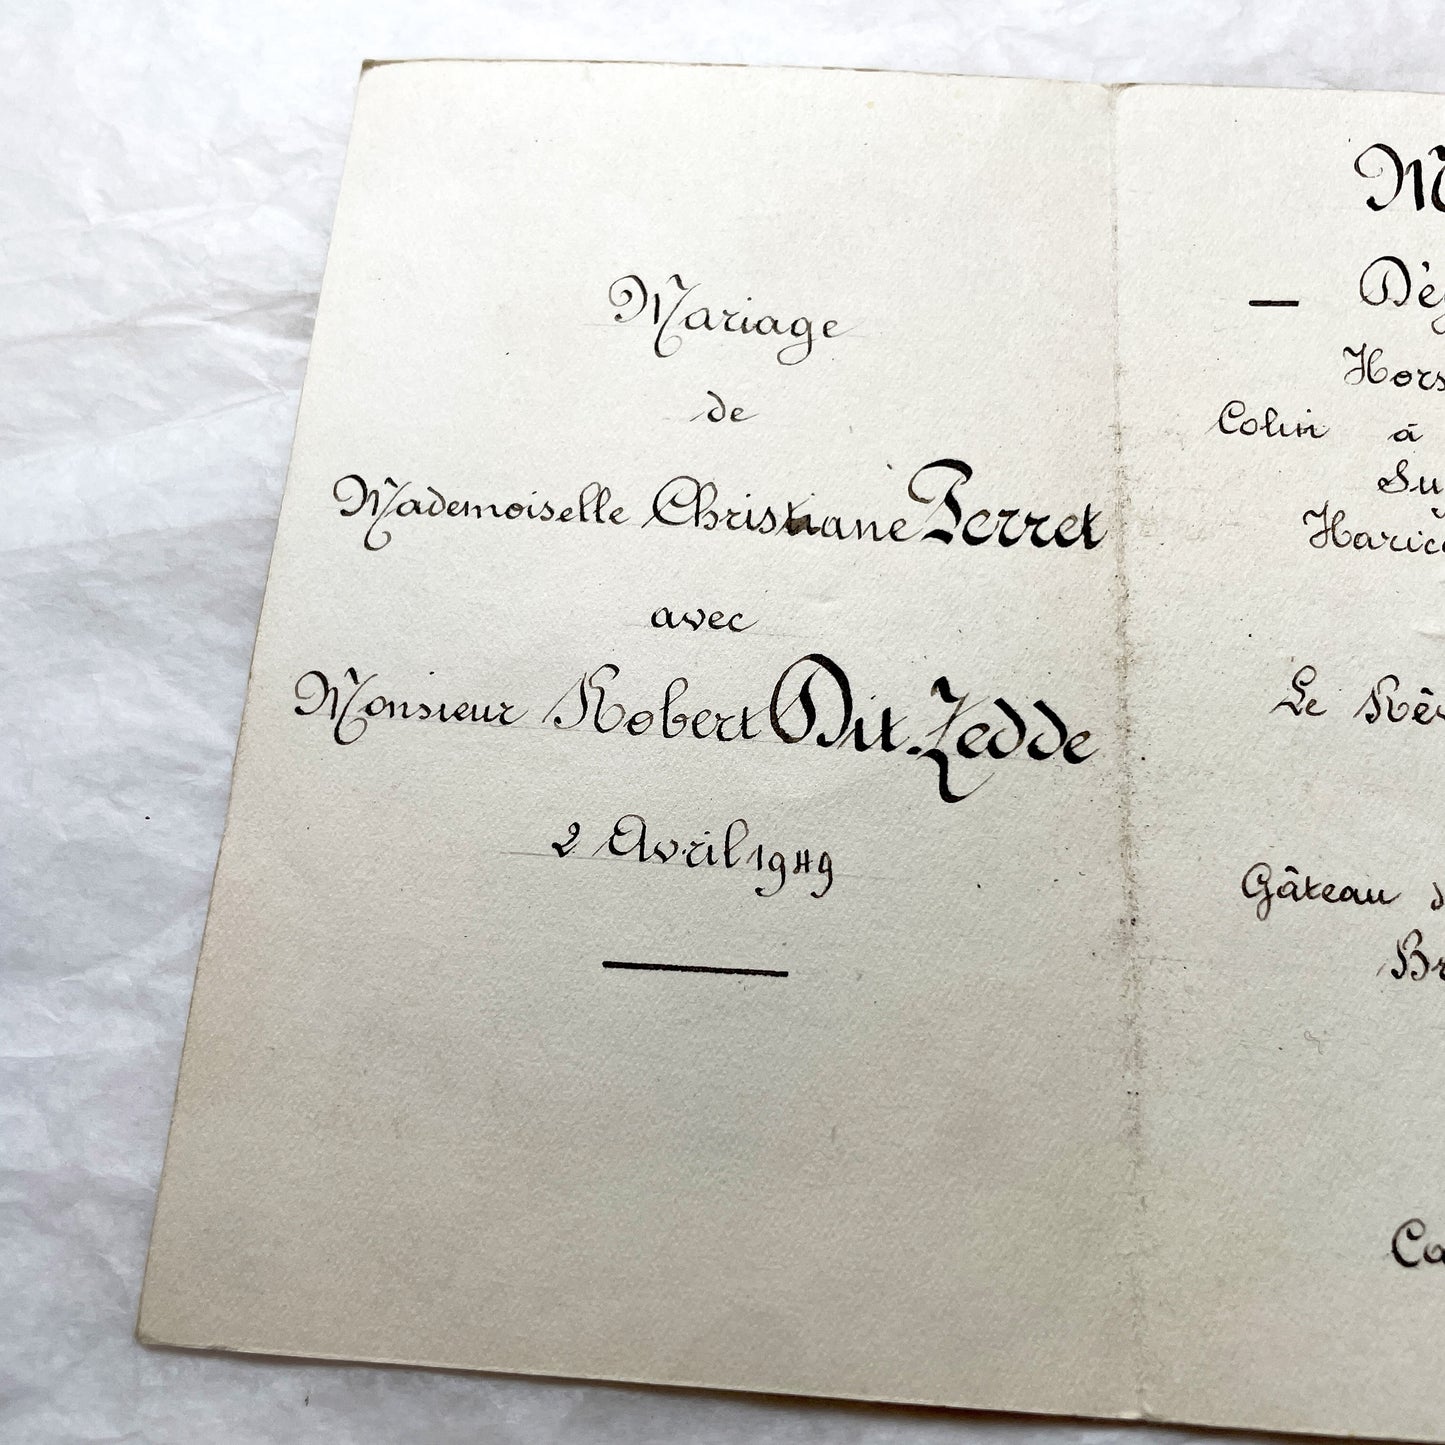 Mariage
de
Mademoiselle Christiane Perret
avec
Monsieur Robert Dit.Zedde
2 Avril 1949
M
— Déj
Hors
Colin à
Su
Haric
Le Rêv
Gâteau d
Br
Ca